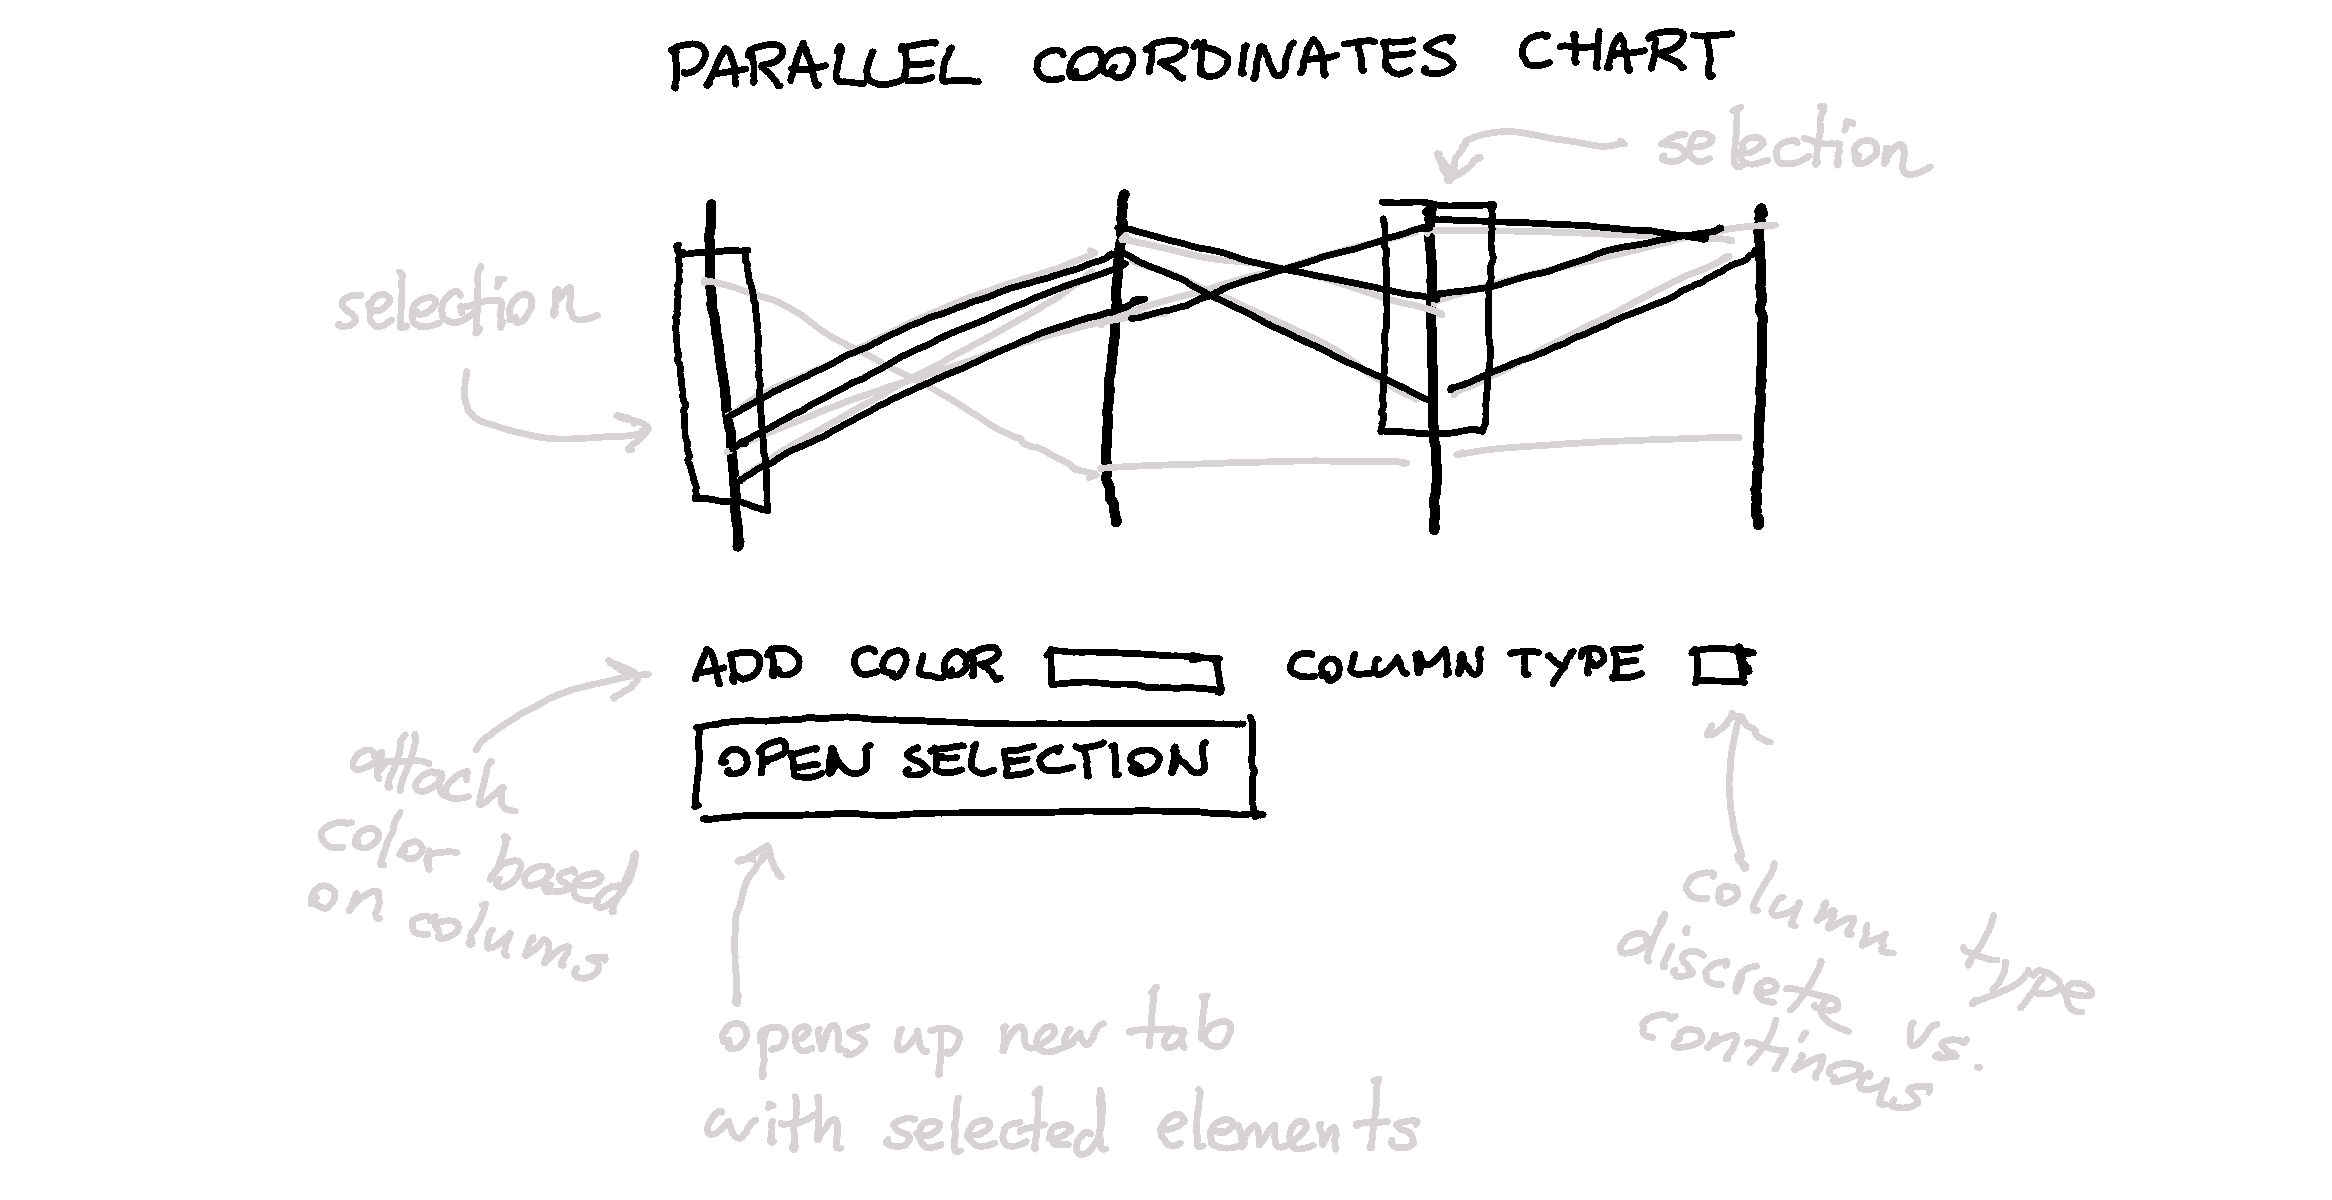 PARALLEL COORDINATES CHART
selection
selection
ADD COLOR COLUMN TYPE
OPEN SELECTION
attach
color based
on colums
opens up new tab
with selected elements
column type
discrete vs.
continous